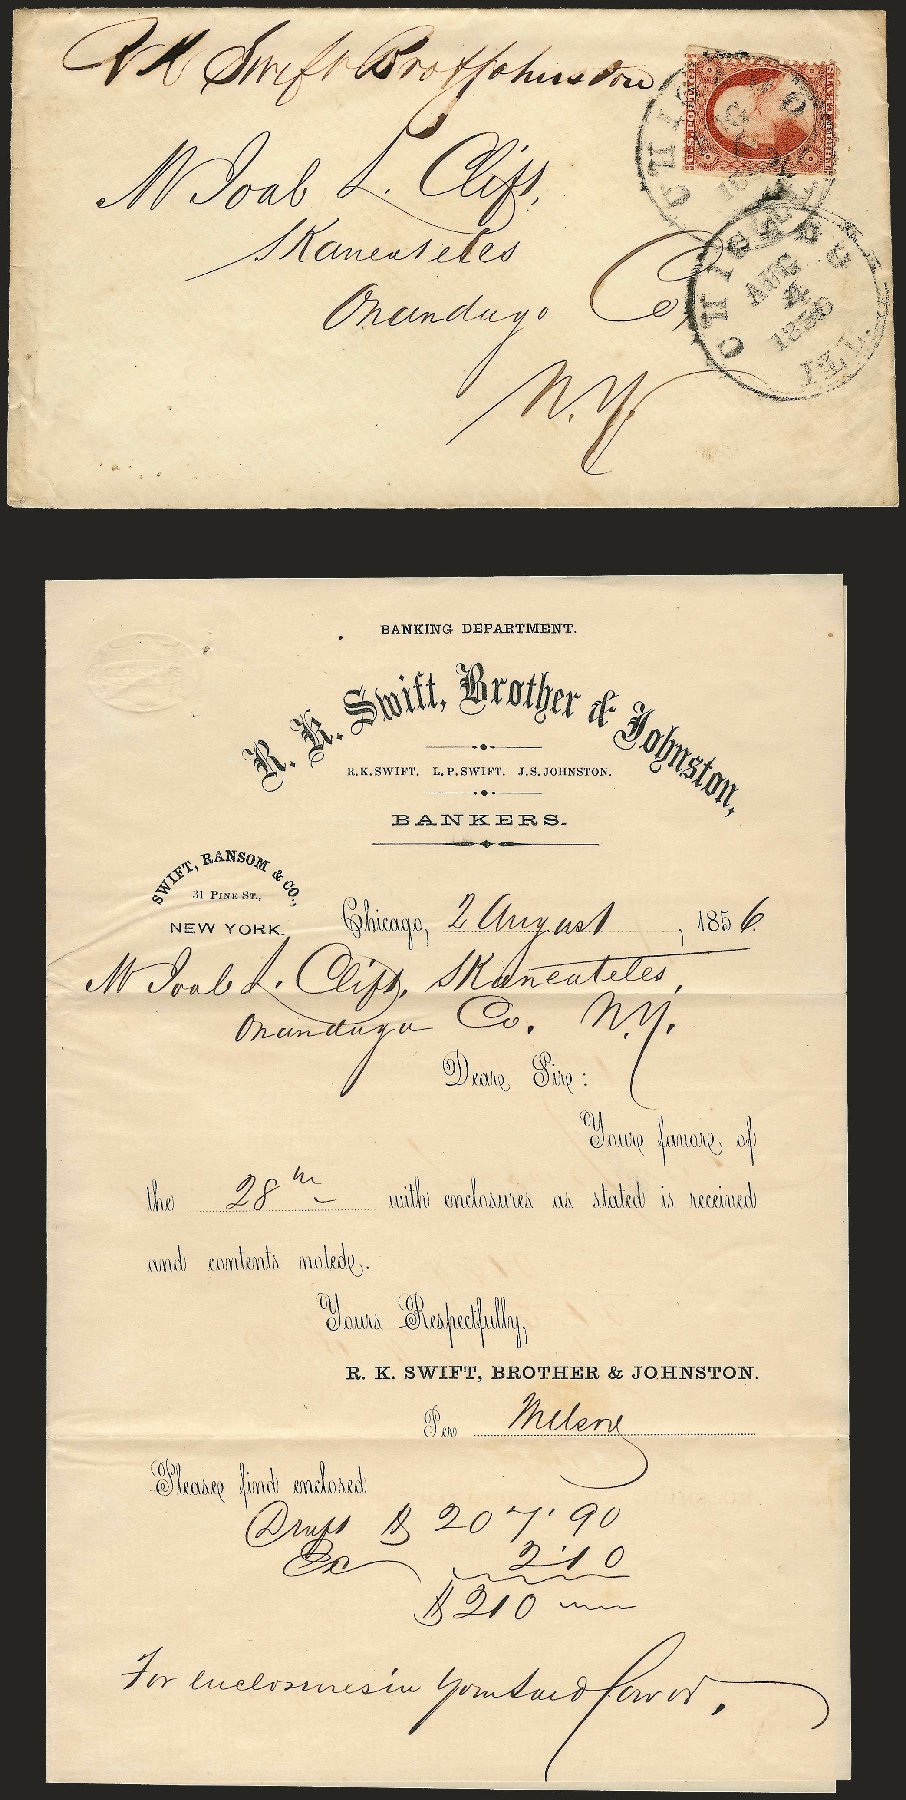 R K Swift Brot Johnston
Mr Joab L. Clift,
Skaneateles
Onandago Co,
N.Y.
CHICAGO
ILL.
CHICAGO
AUG
4
1856
ILL.
BANKING DEPARTMENT.
R. K. Swift, Brother & Johnston,
R.K.SWIFT. L.P.SWIFT. J.S.JOHNSTON.
BANKERS.
SWIFT, RANSOM & CO.,
31 PINE ST.,
NEW YORK.
Chicago, 2 August, 1856
Mr Joab L. Clift, Skaneateles,
Onandaga Co. N.Y.
Dear Sir:
Your favor of
the 28th with enclosures as stated is received
and contents noted.
Yours Respectfully,
R. K. SWIFT, BROTHER & JOHNSTON.
Per
Please find enclosed
Draft $ 207.90
Ex 2.10
$ 210
For enclosures in your said favor,